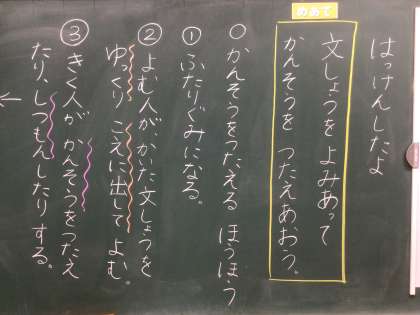 はっけんしたよ
めあて
文しょうを よみあって
かんそうを つたえあおう。
○かんそうをつたえる ほうほう
① ふたりぐみになる。
② よむ人が、かいた文しょうを
ゆっくり こえに出して よむ。
③ きく人が かんそうをつたえ
たり、しつもんしたりする。
←